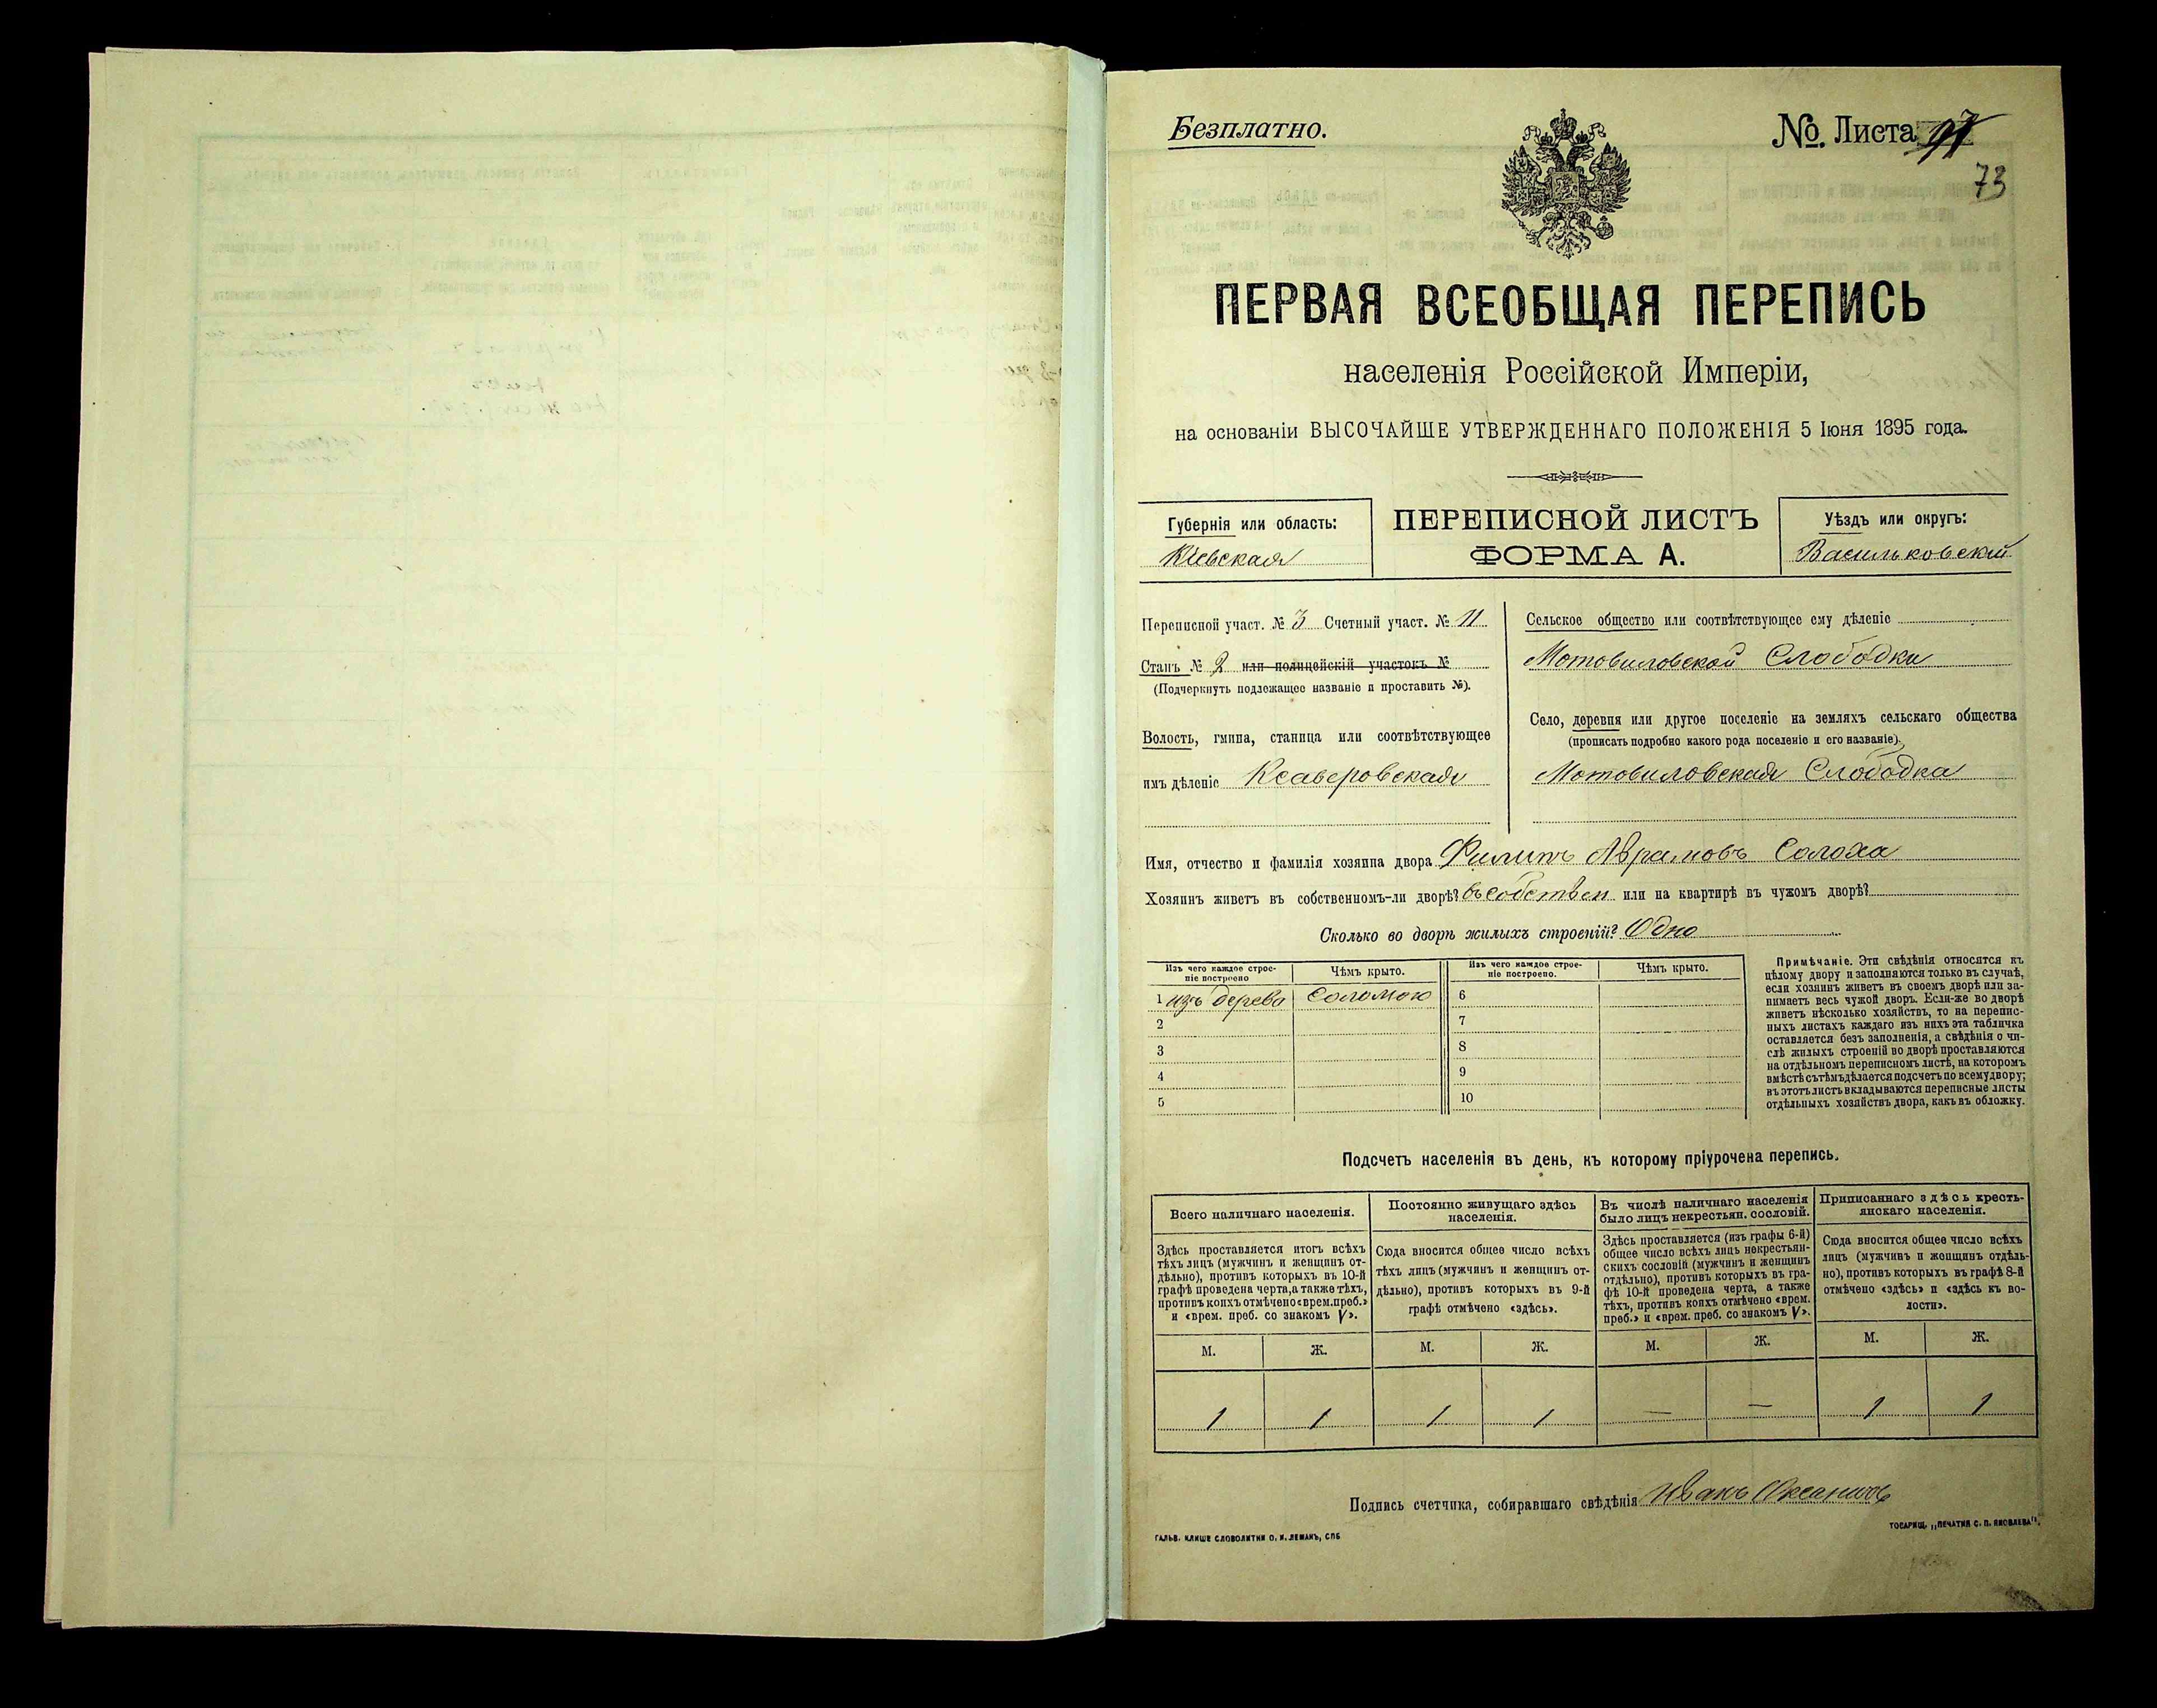 Безплатно.
No. Листа
73
ПЕРВАЯ ВСЕОБЩАЯ ПЕРЕПИСЬ
населенія Россійской Имперіи,
на основаніи ВЫСОЧАЙШЕ УТВЕРЖДЕННАГО ПОЛОЖЕНІЯ 5 Іюня 1895 года.
Губернія или область:
Кіевская
ПЕРЕПИСНОЙ ЛИСТЪ
ФОРМА А.
Уѣздъ или округъ:
Васильковскій
Переписной участ. № 3 Счетный участ. № 11
Станъ № 2 или полицейскій участокъ №
(Подчеркнуть подлежащее названіе и проставить №).
Волость, гмина, станица или соотвѣтствующее
имъ дѣленіе Ксаверовская
Сельское общество или соотвѣтствующее ему дѣленіе
Мотовиловской Слободки
Село, деревня или другое поселеніе на земляхъ сельскаго общества
(прописать подробно какого рода поселеніе и его названіе).
Мотовиловская Слободка
Имя, отчество и фамилія хозяина двора Филипъ Аврамовъ Солоха
Хозяинъ живетъ въ собственномъ-ли дворѣ? въ собствен или на квартирѣ въ чужомъ дворѣ?
Сколько во дворѣ жилыхъ строеній? Одно
Изъ чего каждое строе-
ніе построено
Чѣмъ крыто.
Изъ чего каждое строе-
ніе построено.
Чѣмъ крыто.
1 изъ дерева Соломою 6
2 7
3 8
4 9
5 10
Примѣчаніе. Эти свѣдѣнія относятся къ
цѣлому двору и заполняются только въ случаѣ,
если хозяинъ живетъ въ своемъ дворѣ или за-
нимаетъ весь чужой дворъ. Если-же во дворѣ
живетъ нѣсколько хозяйствъ, то на перепис-
ныхъ листахъ каждаго изъ нихъ эта табличка
оставляется безъ заполненія, а свѣдѣнія о чи-
слѣ жилыхъ строеній во дворѣ проставляются
на отдѣльномъ переписномъ листѣ, на которомъ
вмѣстѣ съ тѣмъ дѣлается подсчетъ по всему двору;
въ этотъ листъ вкладываются переписные листы
отдѣльныхъ хозяйствъ двора, какъ въ обложку.
Подсчетъ населенія въ день, къ которому пріурочена перепись.
Всего наличнаго населенія.
Здѣсь проставляется итогъ всѣхъ
тѣхъ лицъ (мужчинъ и женщинъ от-
дѣльно), противъ которыхъ въ 10-й
графѣ проведена черта, а также тѣхъ,
противъ коихъ отмѣчено «врем. преб.»
и «врем. преб. со знакомъ V».
Постоянно живущаго здѣсь
населенія.
Сюда вносится общее число всѣхъ
тѣхъ лицъ (мужчинъ и женщинъ от-
дѣльно), противъ которыхъ въ 9-й
графѣ отмѣчено «здѣсь».
Въ числѣ наличнаго населенія
было лицъ некрестьян. сословій.
Здѣсь проставляется (изъ графы 6-й)
общее число всѣхъ лицъ некрестьян-
скихъ сословій (мужчинъ и женщинъ
отдѣльно), противъ которыхъ въ гра-
фѣ 10-й проведена черта, а также
тѣхъ, противъ коихъ отмѣчено «врем.
преб.» и «врем. преб. со знакомъ V».
Приписаннаго здѣсь кресть-
янскаго населенія.
Сюда вносится общее число всѣхъ
лицъ (мужчинъ и женщинъ отдѣль-
но), противъ которыхъ въ графѣ 8-й
отмѣчено «здѣсь» и «здѣсь къ во-
лости».
М. Ж. М. Ж. М. Ж. М. Ж.
1 1 1 1 — — 1 1
Подпись счетчика, собиравшаго свѣдѣнія Иванъ
ГАЛЬВ. КЛИШЕ СЛОВОЛИТНИ О. И. ЛЕМАНЪ, СПБ
ТОВАРИЩ. „ПЕЧАТНЯ С. П. ЯКОВЛЕВА".